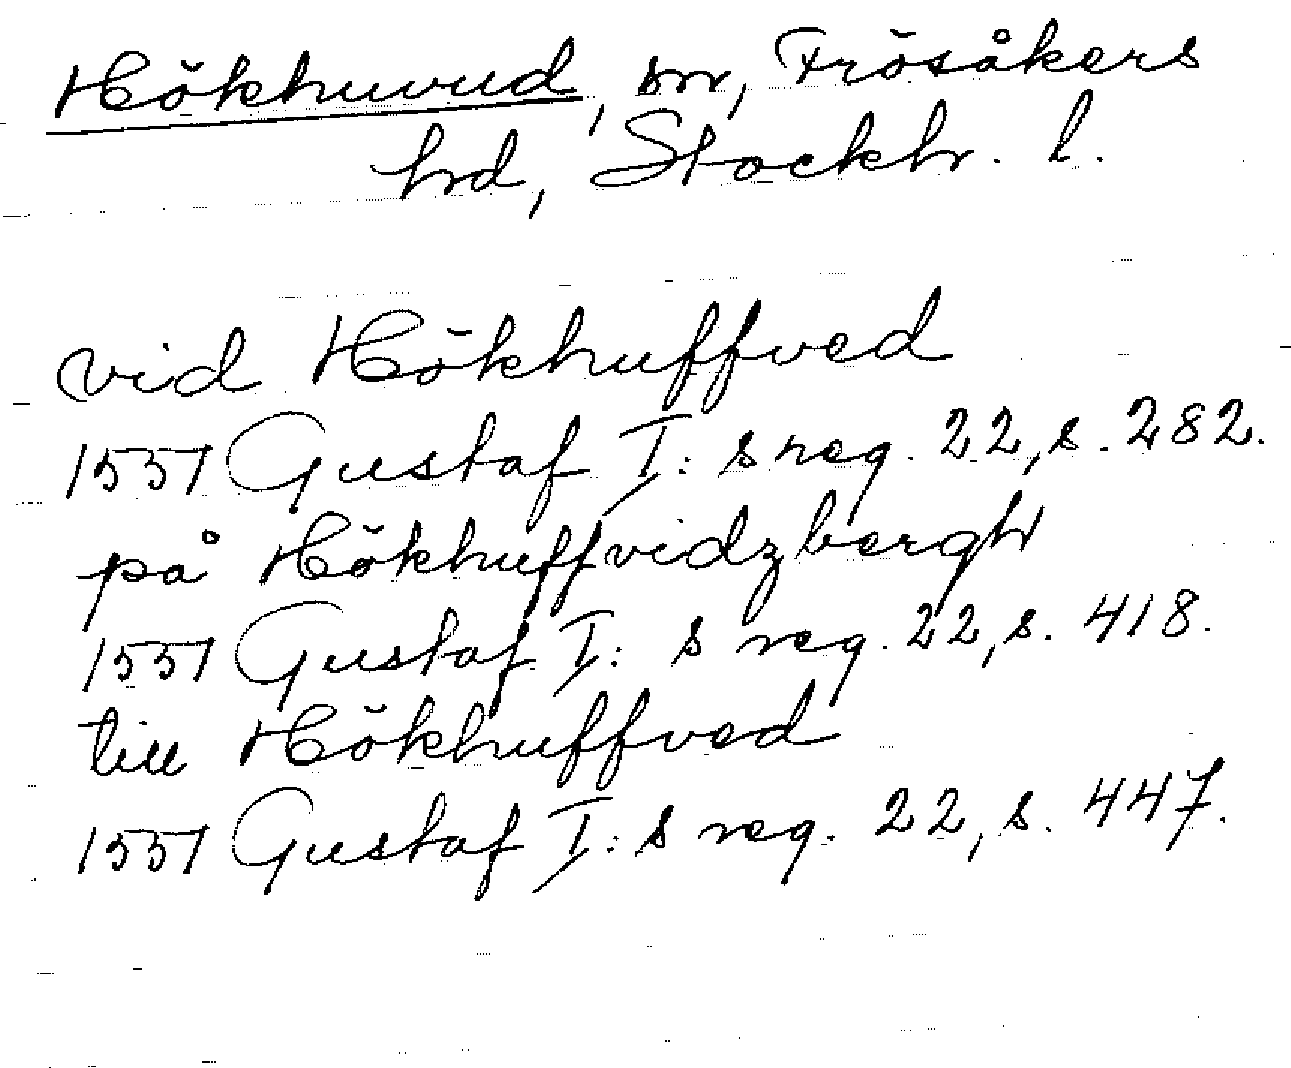 Hökhuvud, sn, Frösåkers
hrd, Stockh. l.
vid Hökhuffved
1551 Gustaf I:s reg. 22, s. 282.
på Hökhuffvidzbergh
1551 Gustaf I:s reg. 22, s. 418.
till Hökhuffved
1551 Gustaf I:s reg. 22, s. 447.